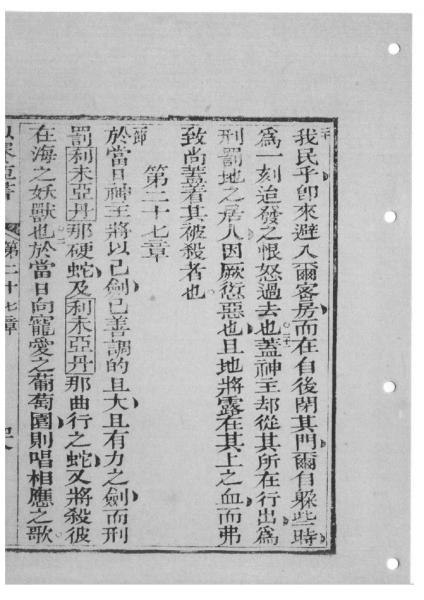 我民乎卽來避入爾客房而在自後閉其門爾自躱些時
爲一刻迨發之恨怒過去也。蓋神主却從其所在行出爲
刑罰地之居人因厥愆惡也且地將露在其上之血而弗
致尚蓋着其被殺者也。
第二十七章
於當日神主將以己劍已善調的且大且有力之劍而刑
罰利未亞丹那硬蛇及利未亞丹那曲行之蛇又將殺彼
在海之妖獸也。於當日向寵愛之葡萄園則唱相應之歌
第二十七章